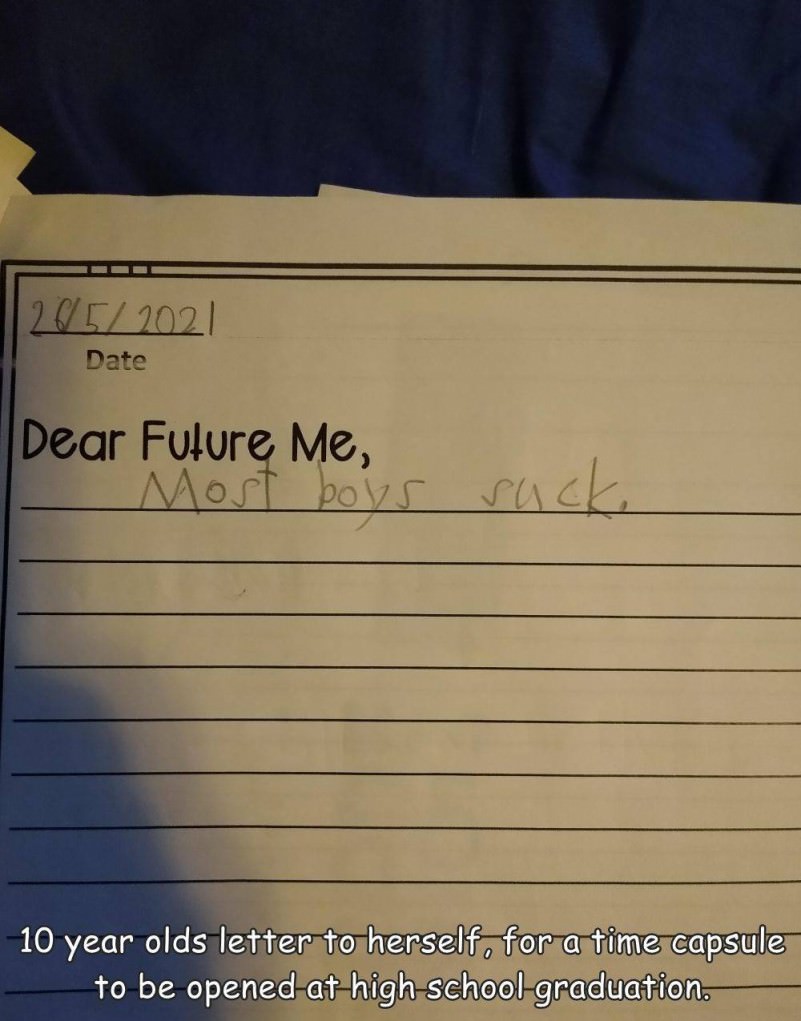 26/5/2021
Date
Dear Future Me,
Most boys suck.
10 year olds letter to herself, for a time capsule
to be opened at high school graduation.